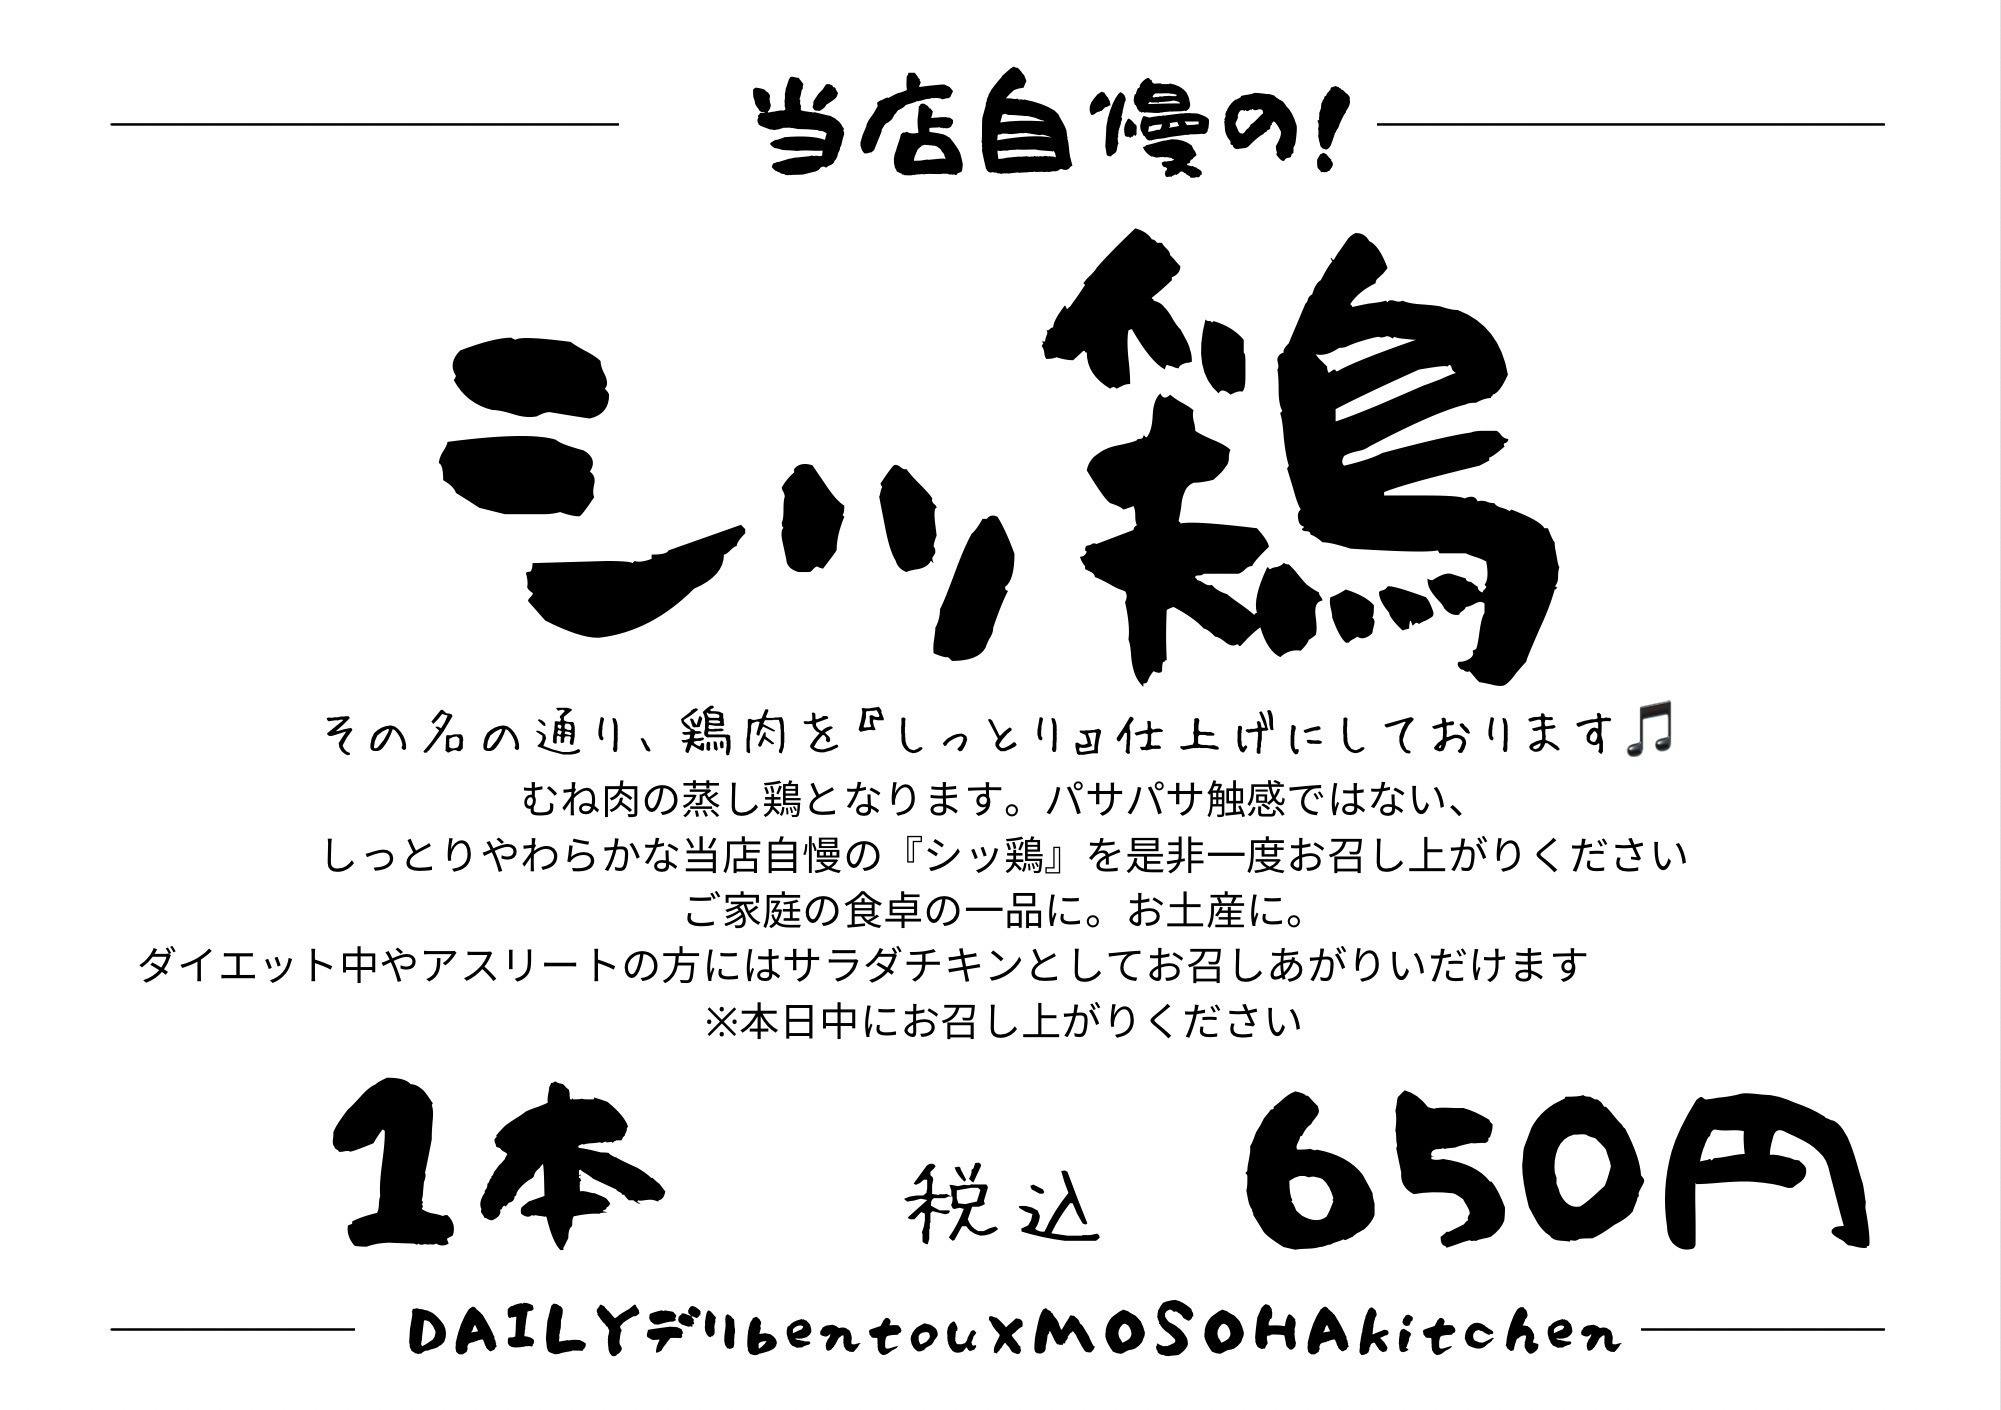 当店自慢の!
シッ鶏
その名の通り、鶏肉を『しっとり』仕上げにしております🎵
むね肉の蒸し鶏となります。パサパサ触感ではない、
しっとりやわらかな当店自慢の『シッ鶏』を是非一度お召し上がりください
ご家庭の食卓の一品に。お土産に。
ダイエット中やアスリートの方にはサラダチキンとしてお召しあがりいだけます
※本日中にお召し上がりください
1本 税込 650円
DAILYデリbentouxMOSOHAkitchen